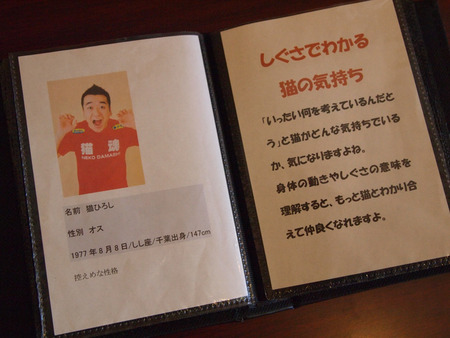 猫魂
NEKO DAMASHII
名前 猫ひろし
性別 オス
1977年8月8日/しし座/千葉出身/147cm
控えめな性格
しぐさでわかる
猫の気持ち
「いったい何を考えているんだと
う」と猫がどんな気持ちでいる
か、気になりますよね。
身体の動きやしぐさの意味を
理解すると、もっと猫とわかり合
えて仲良くなれますよ。